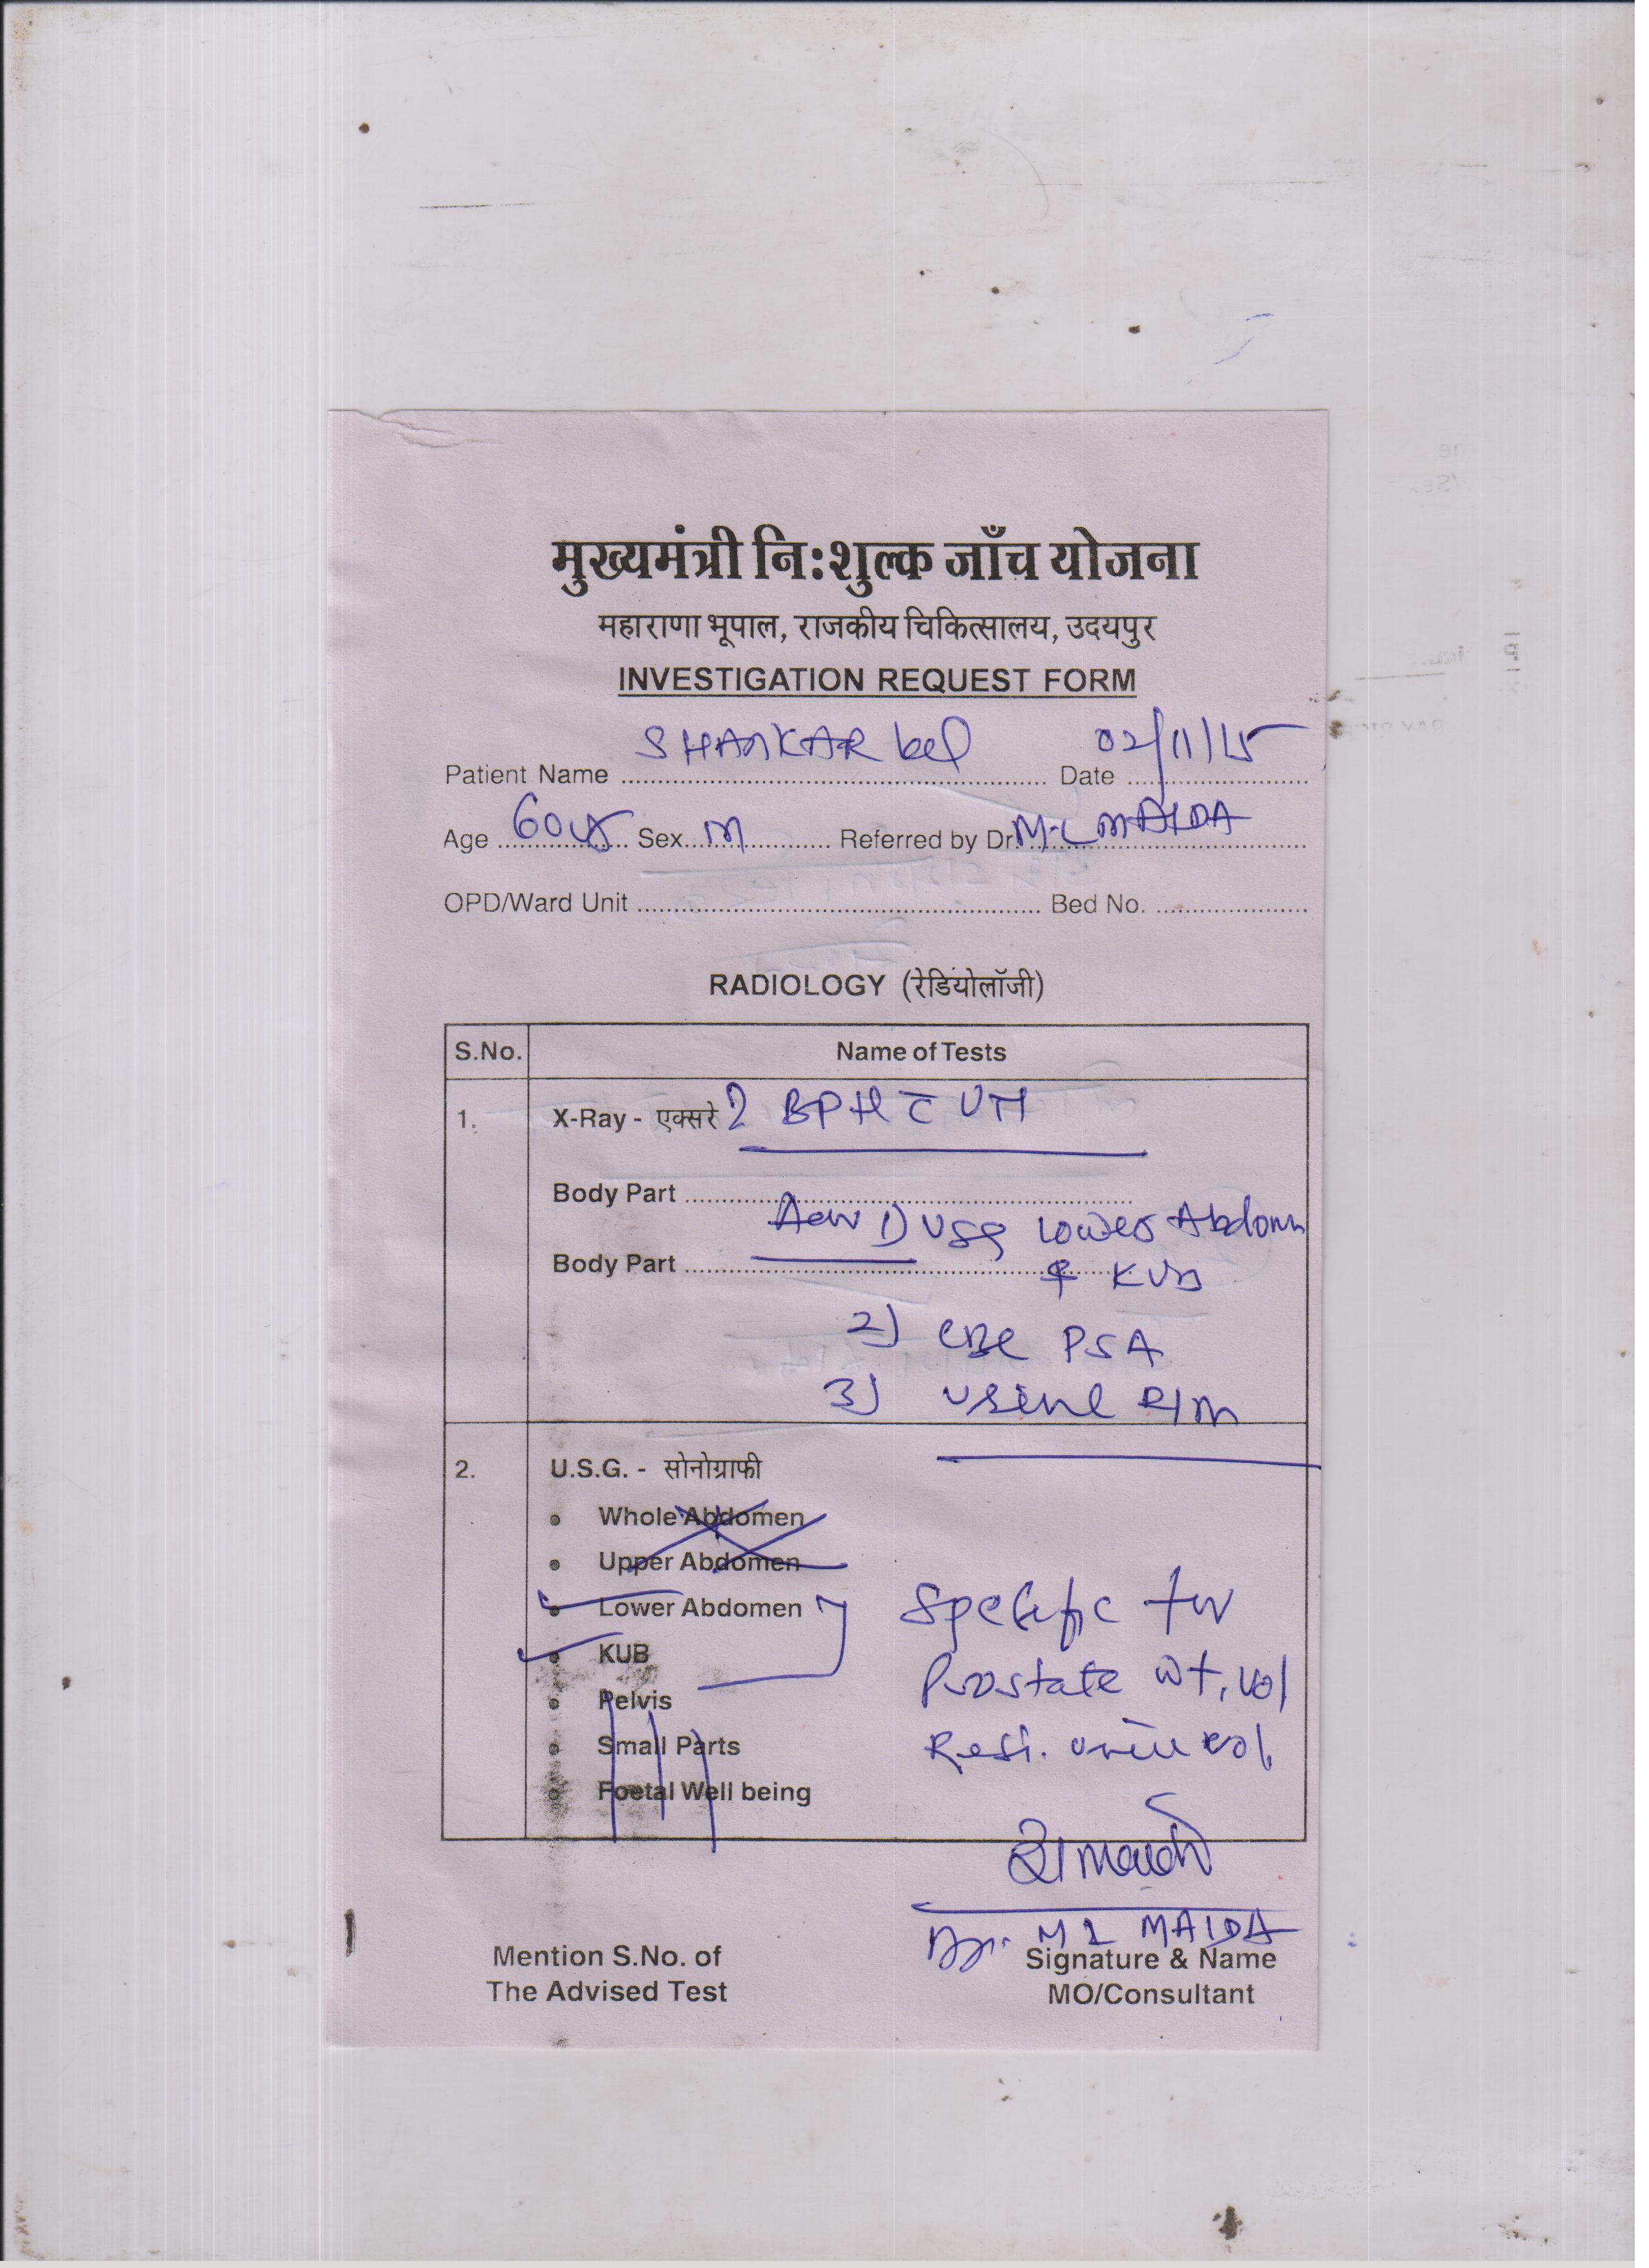 मुख्यमंत्री नि:शुल्क जाँच योजना
महाराणा भूपाल, राजकीय चिकित्सालय, उदयपुर
INVESTIGATION REQUEST FORM
Patient Name SHANKAR Date 02/11/15
Age 60 Sex M Referred by Dr. M.L MAIDA
OPD/Ward Unit Bed No.
RADIOLOGY (रेडियोलॉजी)
S.No. Name of Tests
1. X-Ray - एक्सरे ? BPH c̄ UTI
Body Part
Adv 1) USG Lower Abdomen
Body Part & KUB
2) CBC PSA
3) Urine R/M
2. U.S.G. - सोनोग्राफी
Whole Abdomen
Upper Abdomen
Lower Abdomen
KUB
Specific for
Prostate wt, vol
Pelvis
Small Parts
Resi. urine vol.
Foetal Well being
Dr. M L MAIDA
Mention S.No. of Signature & Name
The Advised Test MO/Consultant